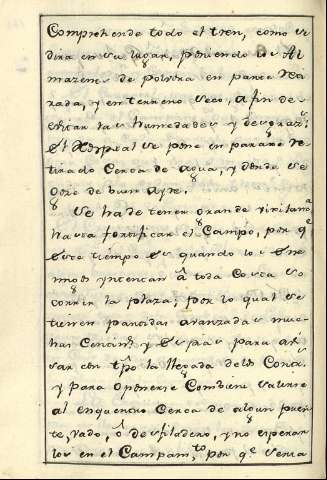 Comprehende todo el tren, como se
dira en su lugar, poniendo los Al
mazenes de polvora en parte
rada, y en terreno seco, a fin de
evitar las humedades y desgraz.s
El Hospital se pone en parage re
tirado Cerca de agua, y donde se
goze de buen Ayre.
Se ha de tener grande vigilanz.a
hasta fortificar el Campo, por q.e
este tiempo es quando los Ene
migos yntentan â toda Costa so
correr la plaza; por lo qual se
tienen partidas avanzadas muc
has Centin.s y Espias para avi
sar con tpô la llegada de los Contr.s
y para oponerse Combiene salirse
al enquentro Cerca de algun puen
te, vado, ô desfiladero, y no esperar
los en el Campam.to por q.e seria